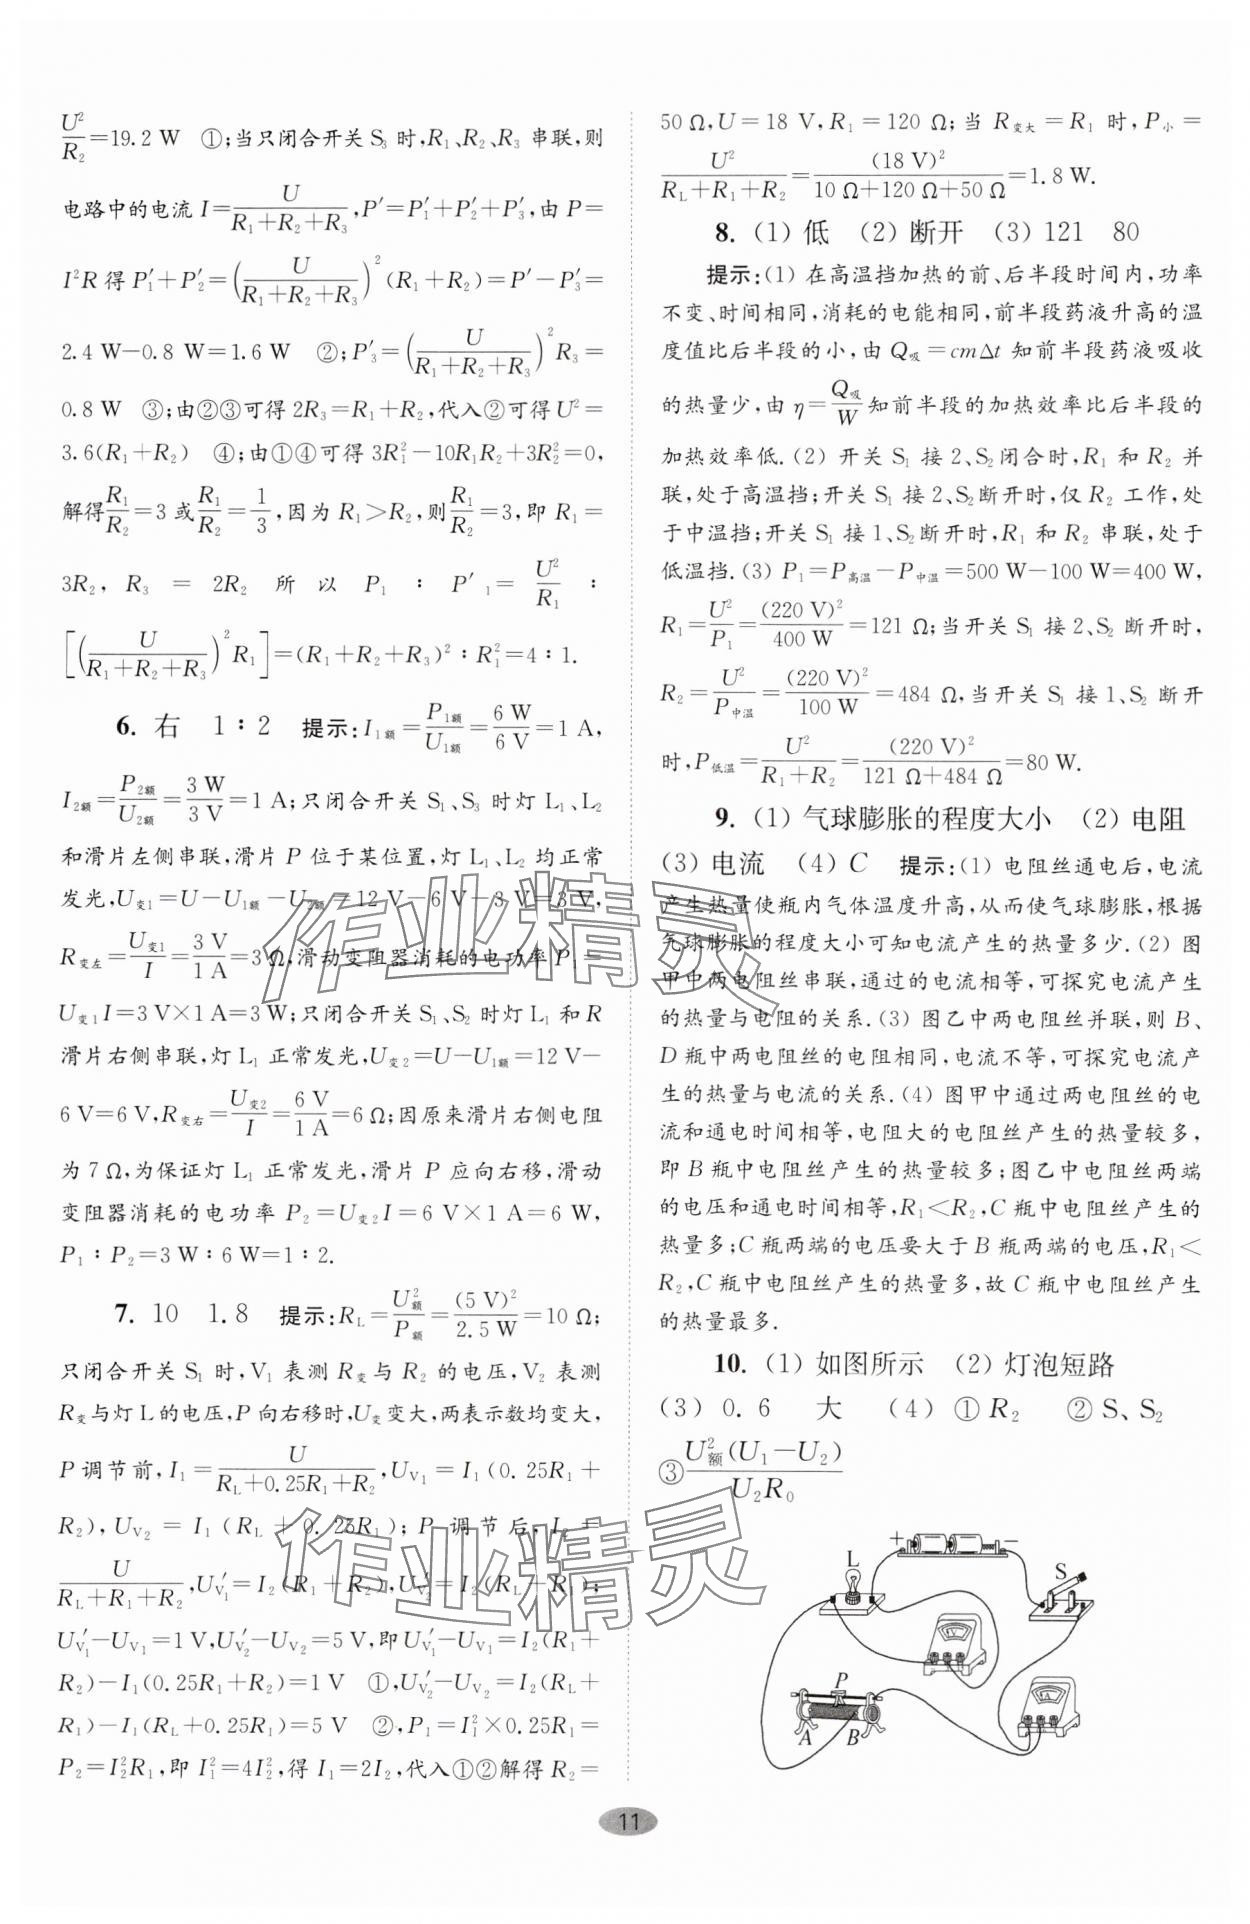 U²/R₂=19.2 W ①;当只闭合开关 S₃ 时,R₁、R₂、R₃ 串联,则
电路中的电流 I=U/(R₁+R₂+R₃),P′=P′₁+P′₂+P′₃,由 P=
I²R 得 P′₁+P′₂=(U/(R₁+R₂+R₃))²(R₁+R₂)=P′−P′₃=
2.4 W−0.8 W=1.6 W ②;P′₃=(U/(R₁+R₂+R₃))²R₃=
0.8 W ③;由②③可得 2R₃=R₁+R₂,代入②可得 U²=
3.6(R₁+R₂) ④;由①④可得 3R₁²−10R₁R₂+3R₂²=0,
解得R₁/R₂=3 或R₁/R₂=1/3,因为 R₁>R₂,则R₁/R₂=3,即 R₁=
3R₂,R₃=2R₂ 所以 P₁∶P′₁=U²/R₁∶
[(U/(R₁+R₂+R₃))²R₁]=(R₁+R₂+R₃)²∶R₁²=4∶1.
6. 右 1∶2 提示:I₁额=P₁额/U₁额=6 W/6 V=1 A,
I₂额=P₂额/U₂额=3 W/3 V=1 A;只闭合开关 S₁、S₃ 时灯 L₁、L₂
和滑片左侧串联,滑片 P 位于某位置,灯 L₁、L₂ 均正常
发光,U变1=U−U₁额−U₂额=12 V−6 V−3 V=3 V,
R变左=U变1/I=3 V/1 A=3 Ω,滑动变阻器消耗的电功率 P₁=
U变1I=3 V×1 A=3 W;只闭合开关 S₁、S₂ 时灯 L₁ 和 R
滑片右侧串联,灯 L₁ 正常发光,U变2=U−U₁额=12 V−
6 V=6 V,R变右=U变2/I=6 V/1 A=6 Ω;因原来滑片右侧电阻
为 7 Ω,为保证灯 L₁ 正常发光,滑片 P 应向右移,滑动
变阻器消耗的电功率 P₂=U变2I=6 V×1 A=6 W,
P₁∶P₂=3 W∶6 W=1∶2.
7. 10 1.8 提示:R_L=U额²/P额=(5 V)²/2.5 W=10 Ω;
只闭合开关 S₁ 时,V₁ 表测 R变与 R₂ 的电压,V₂ 表测
R变与灯 L 的电压,P 向右移时,U变变大,两表示数均变大,
P 调节前,I₁=U/(R_L+0.25R₁+R₂),U_V₁=I₁(0.25R₁+
R₂),U_V₂=I₁(R_L+0.25R₁);P 调节后,I₂=
U/(R_L+R₁+R₂),U′_V₁=I₂(R₁+R₂),U′_V₂=I₂(R_L+R₁);
U′_V₁−U_V₁=1 V,U′_V₂−U_V₂=5 V,即 U′_V₁−U_V₁=I₂(R₁+
R₂)−I₁(0.25R₁+R₂)=1 V ①,U′_V₂−U_V₂=I₂(R_L+
R₁)−I₁(R_L+0.25R₁)=5 V ②,P₁=I₁²×0.25R₁=
P₂=I₂²R₁,即 I₁²=4I₂²,得 I₁=2I₂,代入①②解得 R₂=
50 Ω,U=18 V,R₁=120 Ω;当 R变大=R₁ 时,P小=
U²/(R_L+R₁+R₂)=(18 V)²/(10 Ω+120 Ω+50 Ω)=1.8 W.
8. (1) 低 (2) 断开 (3) 121 80
提示:(1) 在高温挡加热的前、后半段时间内,功率
不变、时间相同,消耗的电能相同,前半段药液升高的温
度值比后半段的小,由 Q吸=cmΔt 知前半段药液吸收
的热量少,由 η=Q吸/W知前半段的加热效率比后半段的
加热效率低.(2) 开关 S₁ 接 2、S₂闭合时,R₁ 和 R₂ 并
联,处于高温挡;开关 S₁ 接 2、S₂断开时,仅 R₂ 工作,处
于中温挡;开关 S₁ 接 1、S₂断开时,R₁ 和 R₂ 串联,处于
低温挡.(3) P₁=P高温−P中温=500 W−100 W=400 W,
R₁=U²/P₁=(220 V)²/400 W=121 Ω;当开关 S₁ 接 2、S₂ 断开时,
R₂=U²/P中温=(220 V)²/100 W=484 Ω,当开关 S₁ 接 1、S₂ 断开
时,P低温=U²/(R₁+R₂)=(220 V)²/(121 Ω+484 Ω)=80 W.
9. (1) 气球膨胀的程度大小 (2) 电阻
(3) 电流 (4) C 提示:(1) 电阻丝通电后,电流
产生热量使瓶内气体温度升高,从而使气球膨胀,根据
气球膨胀的程度大小可知电流产生的热量多少.(2) 图
甲中两电阻丝串联,通过的电流相等,可探究电流产生
的热量与电阻的关系.(3) 图乙中两电阻丝并联,则 B、
D 瓶中两电阻丝的电阻相同,电流不等,可探究电流产
生的热量与电流的关系.(4) 图甲中通过两电阻丝的电
流和通电时间相等,电阻大的电阻丝产生的热量较多,
即 B 瓶中电阻丝产生的热量较多;图乙中电阻丝两端
的电压和通电时间相等,R₁<R₂,C 瓶中电阻丝产生的
热量多;C 瓶两端的电压要大于 B 瓶两端的电压,R₁<
R₂,C 瓶中电阻丝产生的热量多,故 C 瓶中电阻丝产生
的热量最多.
10. (1) 如图所示 (2) 灯泡短路
(3) 0.6 大 (4) ① R₂ ② S、S₂
③U额²(U₁−U₂)/(U₂R₀)
+ −
L
S
V
P
A
A B
11
作业精灵
作业精灵